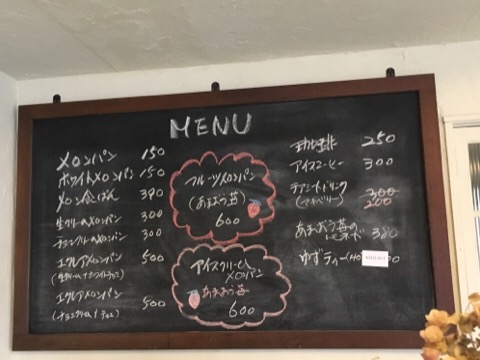 MENU
メロンパン 150
ホワイトメロンパン 150
メロン食ぱん 390
生クリームメロンパン 300
チョコクリームメロンパン 300
エクレアメロンパン 500
(生クリーム+ホワイトチョコ)
エクレアメロンパン 500
(チョコクリーム+チョコ)
フルーツメロンパン
(あまおう苺)
600
アイスクリーム
メロンパン
あまおう苺
600
珈琲 250
アイスコーヒー 300
300
200
あまおう苺の
レモネード 380
ゆずティー(HO